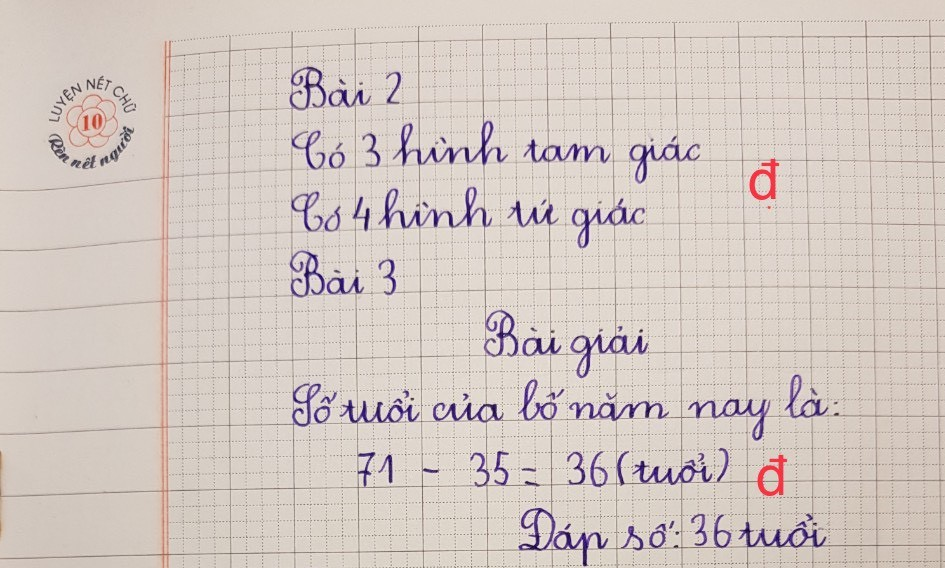 LUYỆN NÉT CHỮ
10
Rèn nết người
Bài 2
Có 3 hình tam giác
Có 4 hình tứ giác
đ
Bài 3
Bài giải
Số tuổi của bố năm nay là:
71 - 35 = 36 (tuổi) đ
Đáp số: 36 tuổi